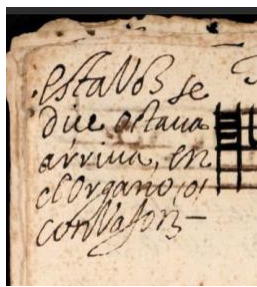 esta Voz se
dice octava
arriva, en
el Organo, o
con Vajon